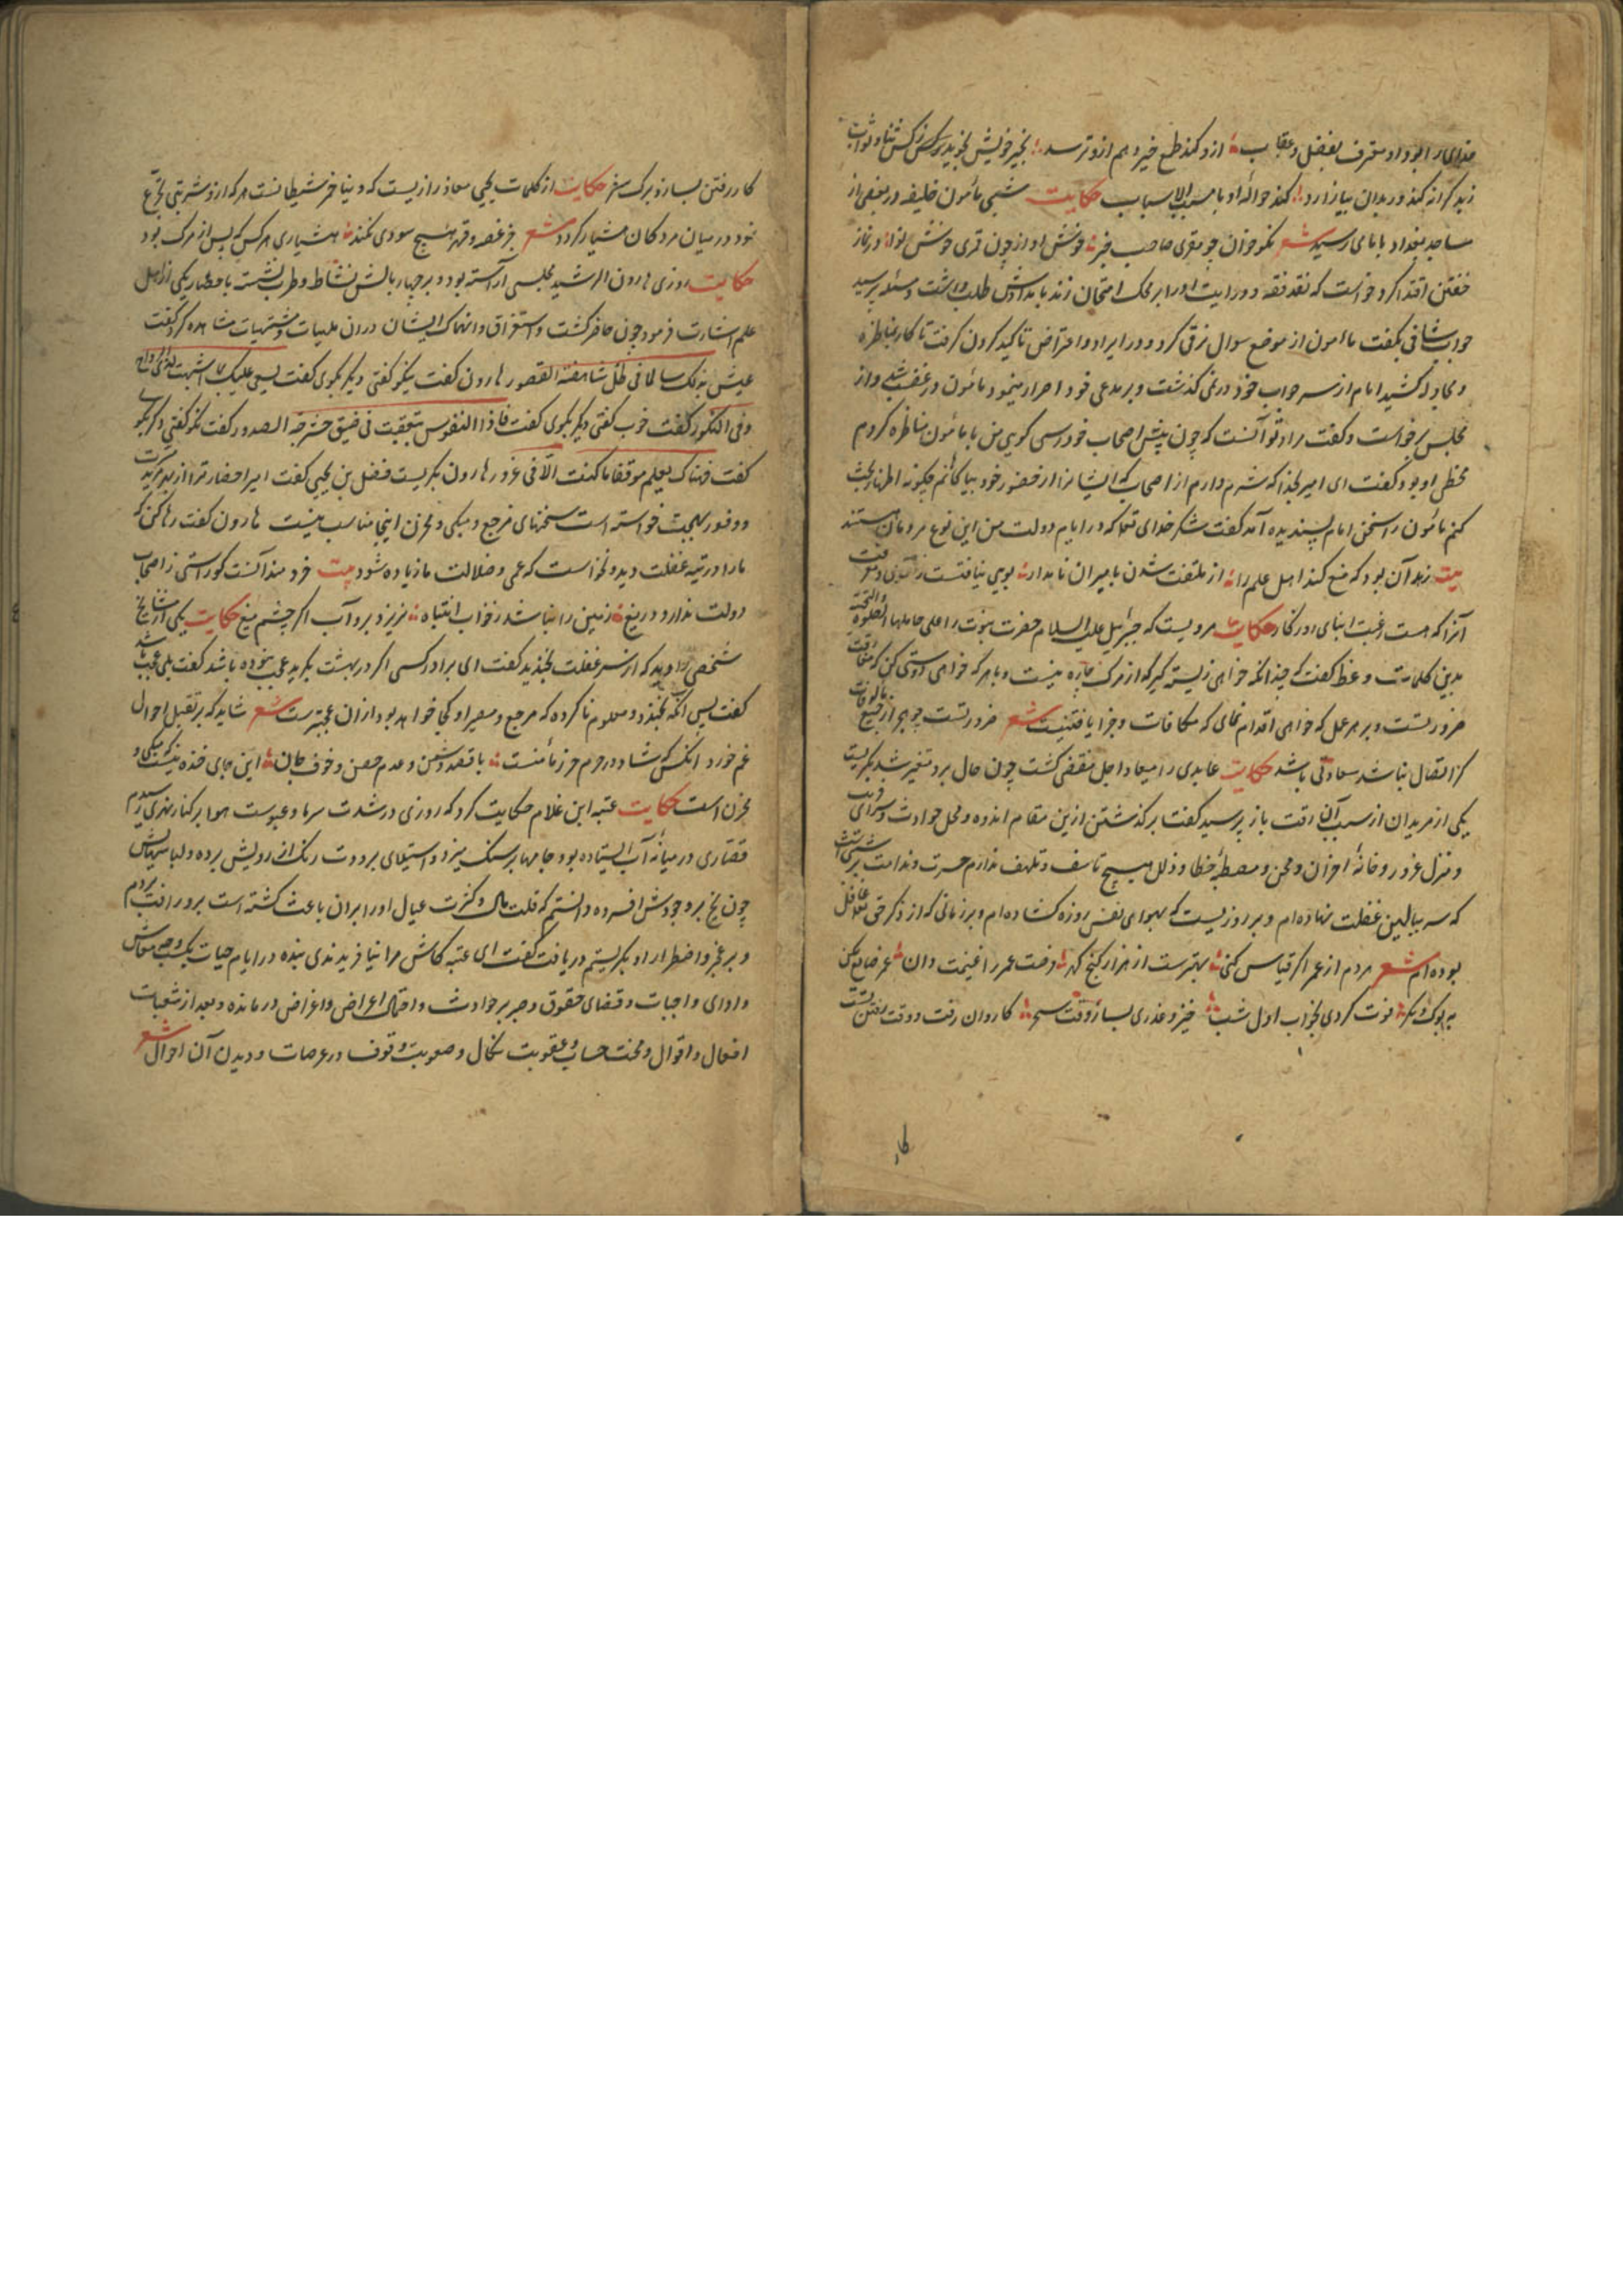 خدای را بود او معترف بفضل و عقاب ازو کند طمع خیر و هم ازو ترسد بخیر خویش نجوید ز کس ثنا و ثواب
زید کرانه کند ور بدان بیازارد کند حواله او با مسبب الاسباب حکایت شبی مأمون خلیفه در بعضی از
مساجد بغداد با مامی رسید شعر نکو خوان چو مقری صاحب خبر خوشش آواز چون قمری خوش نوا در نماز
خفتن اقتدا کرد خواست که نقد فقه و درایت او را بر محک امتحان زند بامدادش طلب داشت و مسئله پرسید
جواب شافی بگفت مأمون از موضع سوال ترقی کرد و در ایراد و اعتراض تاکید کردن گرفت تا کار بمناظره
و مجادله کشید امام از سر جواب خود در نمی گذشت و بر مدعی خود اصرار مینمود مأمون در غضب شد و از
مجلس برخواست و گفت مراد تو آنست که چون پیش اصحاب خود رسی گویی من با مأمون مناظره کردم
مخطی او بود گفت ای امیر بخدا که شرم دارم از اصحاب که ایشانرا از حضور خود بیاگاهانم چگونه اظهار بحث
کنم مأمون را سخن امام پسندیده آمد گفت شکر خدای تعالی که در ایام دولت من این نوع مردمان هستند
بیت زهد آن بود که منع کند اهل علم را از ملتفت شدن بامیران نامدار بویی نیافتست ز
آنرا که هست رغبت ابنای روزگار حکایت مرویست که جبرئیل علیه السلام حضرت نبوت را علی حاملها الصلوة والتحیة
بدین کلمات وعظ گفت که چندانکه خواهی زیسته گیر که از مرگ چاره نیست و با هر که خواهی دوستی کن که مفارقت
ضرورتست و بر هر عمل که خواهی اقدام نمای که مکافات و جزا یافتنیست شعر ضرورتست چو هجر از جمیع مالوفات
گر اتصال نباشد سعادتی باشد حکایت عابدی را میعاد اجل منقضی گشت چون حال برو متغیر شد بگریست
یکی از مریدان از سبب آن رقت باز پرسید گفت بر گذشتن ازین مقام اندوه و محل حوادث و سرای فریب
و منزل غرور و خانهٔ احزان و محن و مصطبهٔ خطا و ذلل هیچ تاسف و تلهف ندارم حسرت و ندامت بر شبی است
که سر ببالین غفلت نهاده‌ام و بر روزیست که بهوای نفس روزه گشاده‌ام و بر زمانی که از ذکر حق تعالی غافل
بوده‌ام شعر هر دم از عمر اگر قیاس کنی بهترست از هزار گنج گهر فرصت عمر را غنیمت دان عمر ضایع مکن
به بوک و مگر فوت کردی بخواب اول شب خیز و عذری بساز وقت سحر کاروان رفت و وقت رفتن تست
کار
کار رفتن بساز و برگ سفر حکایت از کلمات یحیی معاذ رازیست که دنیا خمر شیطانست هر که ازو شربتی تجرع
نمود در میان مردگان هشیار گردد شعر جز غصه و قهر هیچ سودی نکند هشیاری هر کس که پس از مرگ بود
حکایت روزی هارون الرشید مجلسی آراسته بود و بر چهار بالش نشاط و طرب نشسته با حضار یکی از اهل
علم اشارت فرمود چون حاضر گشت و استغراق و انهماک ایشان در آن ملهیات و مشتهیات مشاهده کرد گفت
عیش بدلک سالما فی ظل شاهقة القصور هارون گفت نیکو گفتی دیگر بگوی گفت یسعی علیک بما اشتهیت لدی الرواح
وفی البکور گفت خوب گفتی دیگر بگوی گفت فاذا النفوس تقعقعت فی ضیق حشرجة الصدور گفت نکو گفتی دگر بگو
گفت فهناک تعلم موقنا ما کنت الا فی غرور هارون بگریست فضل بن یحیی گفت امیر احضار ترا از
و وفور بهجت خواسته است سخنهای مرجع و مبکی و محزن اینجا مناسب نیست هارون گفت رها کن که
ما را در تیه غفلت دید و نخواست که عمی و ضلالت ما زیاده شود بیت خردمند آنست کو راستی ز اصحاب
دولت ندارد دریغ زمین را نباشد ز خواب انتباه نریزد برو آب اگر چشم میغ حکایت یکی از مشایخ
شخصی را دید که از سر غفلت بخندید گفت ای برادر کسی اگر در بهشت بگرید عجب نبوده باشد گفت بلی عجب باشد
گفت پس آنکه بخندد و معلوم ناکرده که مرجع و مصیر او کجا خواهد بود از آن عجبترست شعر شاید که بر تقلب احوال
غم خورد آنکس که شاد در حرم حرز مأمنست با قصد دشمن و عدم حصن و خوف جان این جای خنده نیست که مبکی و
محزن است حکایت عتبه ابن غلام حکایت کرد که روزی در شدت سرما و عبوست هوا بر کنار نهری رسیدم
قصاری در میانه آب ایستاده بود و جامها بر سنگ میزد و استیلای برودت رنگ از رویش برده و لباسهاش
چون یخ بر وجودش افسرده دانستم که قلت مال و کثرت عیال او را بر آن باعث گشته است برو رقت بردم
و بر عجز و اضطرار او بگریستم دریافت گفت ای عتبه کاش مرا نیافریدندی بنده در ایام حیات یک وجه معاش
و ادای واجبات و قضای حقوق و صبر بر حوادث و اعراض و اغراض درمانده و بعد از
افعال و اقوال و محنت حساب و عقوبت نکال و صعوبت وقوف در عرصات و دیدن آن احوال شعر